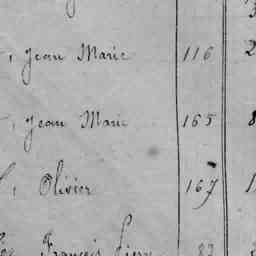 , Jean Marie 116 2
, Jean Marie 165 8
, Olivier 167 1
François Pierre 83